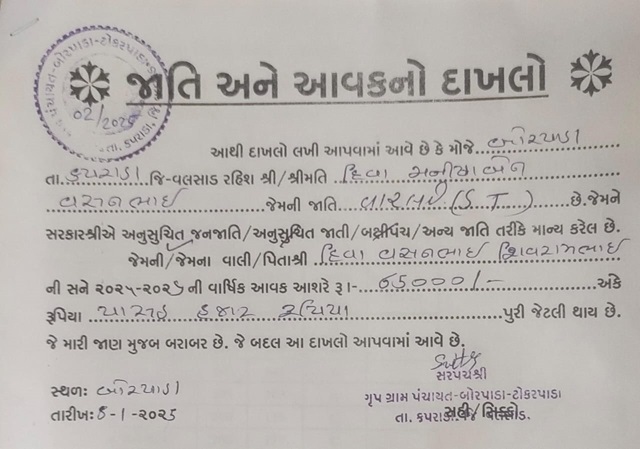 ગૃપ ગ્રામ પંચાયત-બોરપાડા-ટોકરપાડા
02/2026
તા. કપરાડા, જિ.
જાતિ અને આવકનો દાખલો
આથી દાખલો લખી આપવામાં આવે છે કે મોજે બોરપાડા
તા. કપરાડા જિ-વલસાડ રહિશ શ્રી/શ્રીમતિ દિવા મનીષાબેન
વસનભાઇ જેમની જાતિ વારલી (S.T.) છે.જેમને
સરકારશ્રીએ અનુસુચિત જનજાતિ/અનુસુચિત જાતી/બક્ષીપંચ/અન્ય જાતિ તરીકે માન્ય કરેલ છે.
જેમની/જેમના વાલી/પિતાશ્રી દિવા વસનભાઇ શિવરામભાઇ
ની સને ૨૦૨૫-૨૦૨૬ ની વાર્ષિક આવક આશરે રૂા.- 65000/- અંકે
રૂપિયા પાસઠ હજાર રૂપિયા પુરી જેટલી થાય છે.
જે મારી જાણ મુજબ બરાબર છે. જે બદલ આ દાખલો આપવામાં આવે છે.
સરપંચશ્રી
સ્થળ: બોરપાડા
ગૃપ ગ્રામ પંચાયત-બોરપાડા-ટોકરપાડા
તારીખ: -1-૨૦૨૬
તા. કપરાડા. જિ વલસાડ.
સહી/સિક્કો